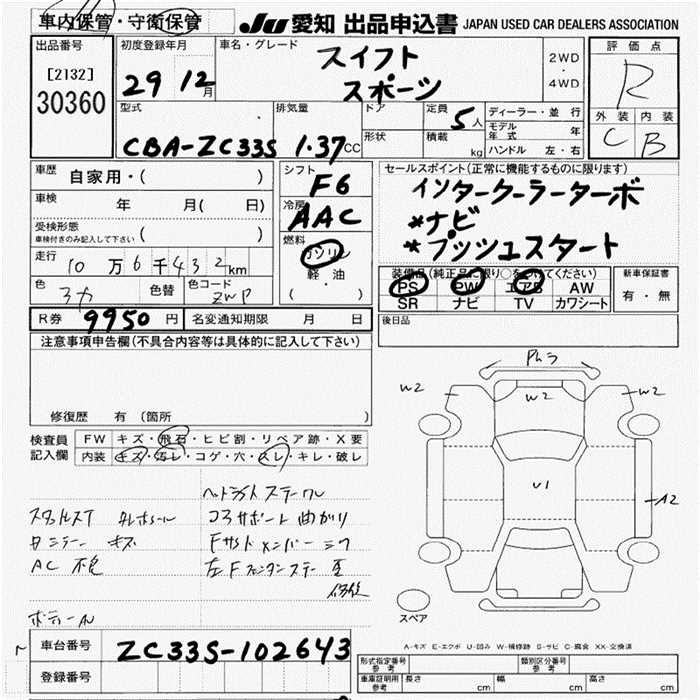 車内保管・守衛保管
JU 愛知 出品申込書 JAPAN USED CAR DEALERS ASSOCIATION
出品番号
[2132]
30360
初度登録年月
29 12月
車名・グレード
スイフト
スポーツ
2WD
・
4WD
評価点
R
外装 内装
C B
型式
CBA-ZC33S
排気量
1.37CC
ドア
形状
定員
5人
積載
kg
ディーラー・並行
モデル年式 年
ハンドル 左・右
車歴
自家用・( )
車検
年 月( 日)
受検形態
車検付きのみ記入して下さい ( )
走行
10万6千432km
色
色替
色コード
ZWP
シフト
F6
冷房
AAC
燃料
ガソリン
軽油
( ・ )
セールスポイント(正常に機能するものに限ります)
インタークーラーターボ
*ナビ
*プッシュスタート
装備品(純正品に限り○をつけてください)
PS PW エアB AW
SR ナビ TV カワシート
新車保証書
有・無
R券 9950円
名変通知期限 月 日
後日品
注意事項申告欄(不具合内容等は具体的に記入して下さい)
修復歴 有(箇所 )
検査員記入欄
FW キズ・飛石・ヒビ割・リペア跡・X要
内装 キズ・汚レ・コゲ・穴・スレ・キレ・破レ
ヘッドライトステー
コアサポート曲がり
キズ
AC
左F
W2
W2
W2
U1
A2
スペア
A-キズ E-エクボ U-凹み W-補修跡 S-サビ C-腐食 XX-交換済
車台番号
ZC33S-102643
登録番号
形式指定番号 参考
類別区分番号 参考
車庫証明用 参考
長さ cm
幅 cm
高さ cm